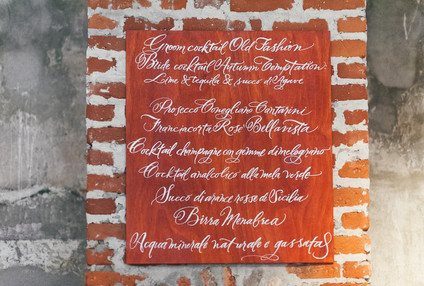 Groom cocktail Old Fashion
Bride cocktail Autumn Temptation:
Lime & tequila & succo di Agave
Prosecco Conegliano Cantarini
Franciacorta Rosè Bellavista
Cocktail champagne con gemme di melograno
Cocktail analcolico alla mela verde
Succo di arance rosse di Sicilia
Birra Menabrea
Acqua minerale naturale e gassata